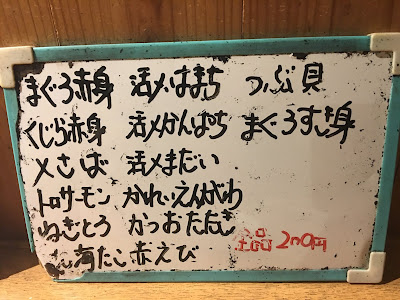 まぐろ赤身 活〆はまち つぶ貝
くじら赤身 活〆かんぱち まぐろすき身
〆さば 活〆まだい
トロサーモン かれいえんがわ
ねぎとろ かつおたたき
たこ 赤えび
200円